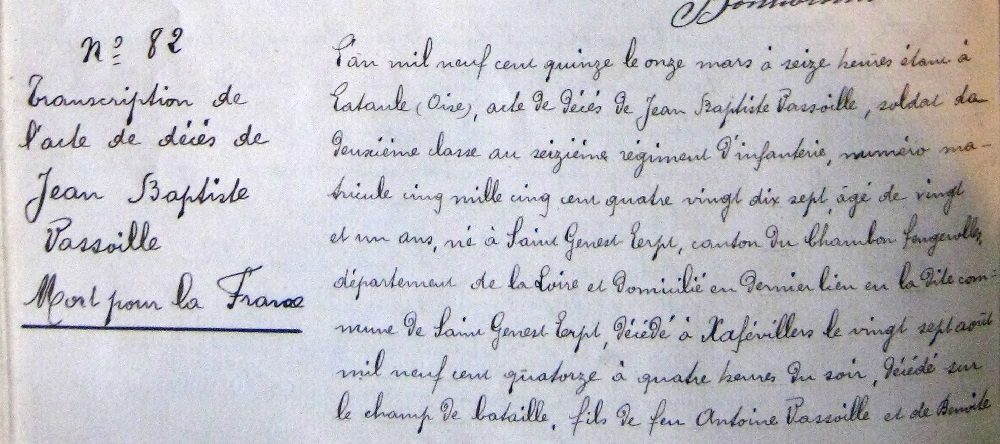 N° 82
Transcription de
l'acte de décés de
Jean Baptiste
Vassoille
Mort pour la France
L'an mil neuf cent quinze le onze mars à seize heures étant à
Lataule (Oise), acte de décés de Jean Baptiste Vassoille, soldat de
deuxième classe au seizième régiment d'infanterie, numéro ma-
tricule cinq mille cinq cent quatre vingt dix sept, âgé de vingt
et un ans, né à Saint Genest Lerpt, canton du Chambon Feugerolles,
département de la Loire et domicilié en dernier lieu en la dite com-
mune de Saint Genest Lerpt, décédé à Xafévillers le vingt sept août
mil neuf cent quatorze à quatre heures du soir, décédé sur
le champ de bataille, fils de feu Antoine Vassoille et de Benoite